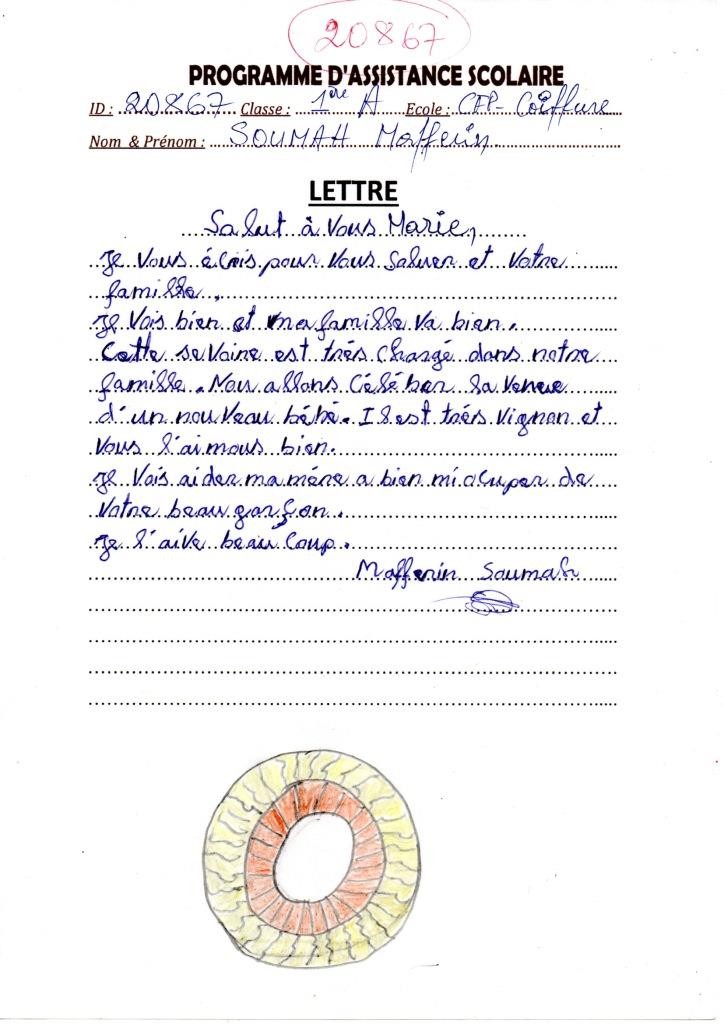 20867
PROGRAMME D'ASSISTANCE SCOLAIRE
ID : 20867 Classe : 1ère A Ecole : CFP- Coiffure
Nom & Prénom : SOUMAH Mafferin
LETTRE
Salut à Vous Marie,
Je Vous écris pour Vous Saluer et Votre
famille.
Je Vais bien et ma famille Va bien.
Cette sevaine est très chargé dans notre
famille. Nou allons Célébrer la Venue
d'un nouveau bébé. Il est très vignon et
Vous l'aimous bien.
Je Vais aider ma mère a bien m'ocuper de
Votre beau garçon.
Je l'aive beau Coup.
Mafferin Soumah